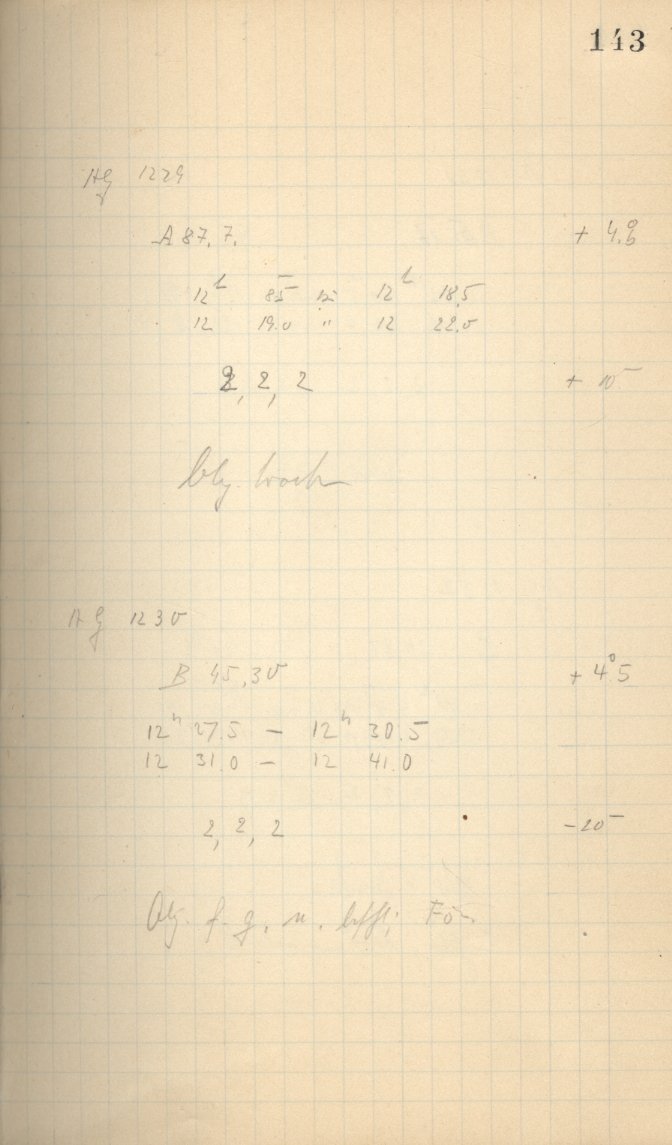 143
AG 1229
A 87, 7. + 4.°6
12h 8.5 bis 12h 18.5
12 19.0 " 12 22.0
2, 2, 2 + 10
Obj.
AG 1230
B 45, 30 + 4.°5
12h 27.5 — 12h 30.5
12 31.0 — 12 41.0
2, 2, 2 - 20
Obj. f. g. u.